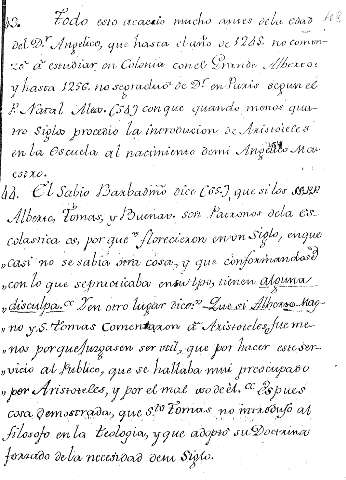 43. Todo esto acaecio mucho antes de la edad
del Dr. Angelico, que hasta el año de 1245. no comen
zó á estudiar en Colonia con el Grande Alberto:
y hasta 1256. no se graduó de Dr. en Paris segun el
P. Natal Alex. (54) conque quando menos qua
tro siglos precedio la introducion de Aristoteles
en la Escuela al nacimiento de mi Angelico Ma
estro.
44. El Sabio Barbadiño dice (55), que si los
Alberto, Tomas, y Buenav. son Patronos de la Es
colastica es, por que florecieron en un Siglo, en que
casi no se sabia otra cosa, y que conformandose
con lo que se practicaba en su tpo, tienen alguna
disculpa. Y en otro lugar dice: Que si Alberto Mag
no y S. Tomas Comentaron á Aristoteles, fue me
nos porque juzgasen ser util, que por hacer este ser
vicio al Publico, que se hallaba mui preocupado
por Aristoteles, y por el mal uso de él. Es pues
cosa demostrada, que Sto. Tomas no introdujo al
filosofo en la Teologia, y que adoptó su Doctrina
forzado de la necesidad de su Siglo.